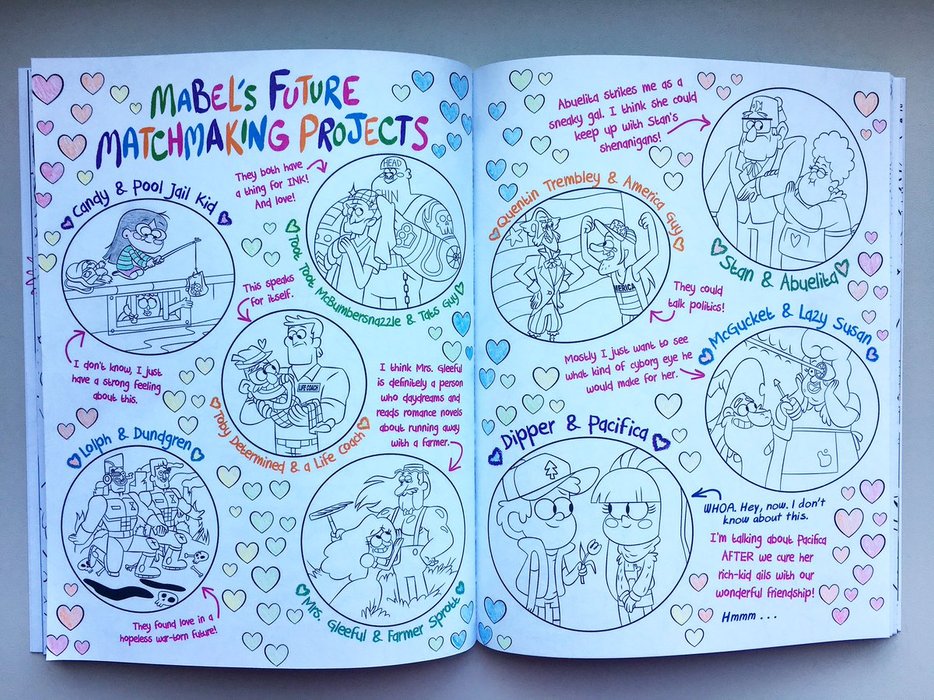 MABEL'S FUTURE
MATCHMAKING PROJECTS
Candy & Pool Jail Kid
I don't know, I just
have a strong feeling
about this.
They both have
a thing for INK!
And love!
HEAD
Toot Toot McBumbersnazzle & Tats Guy
This speaks
for itself.
LIFE COACH
Toby Determined & a Life Coach
Lolph & Dundgren
They found love in a
hopeless war-torn future!
I think Mrs. Gleeful
is definitely a person
who daydreams and
reads romance novels
about running away
with a farmer.
Mrs. Gleeful & Farmer Sprott
Abuelita strikes me as a
sneaky gal. I think she could
keep up with Stan's
shenanigans!
Stan & Abuelita
Quentin Trembley & America Guy
'MERICA
They could
talk politics!
McGucket & Lazy Susan
Mostly I just want to see
what kind of cyborg eye he
would make for her.
Dipper & Pacifica
WHOA. Hey, now. I don't
know about this.
I'm talking about Pacifica
AFTER we cure her
rich-kid ails with our
wonderful friendship!
Hmmm . . .